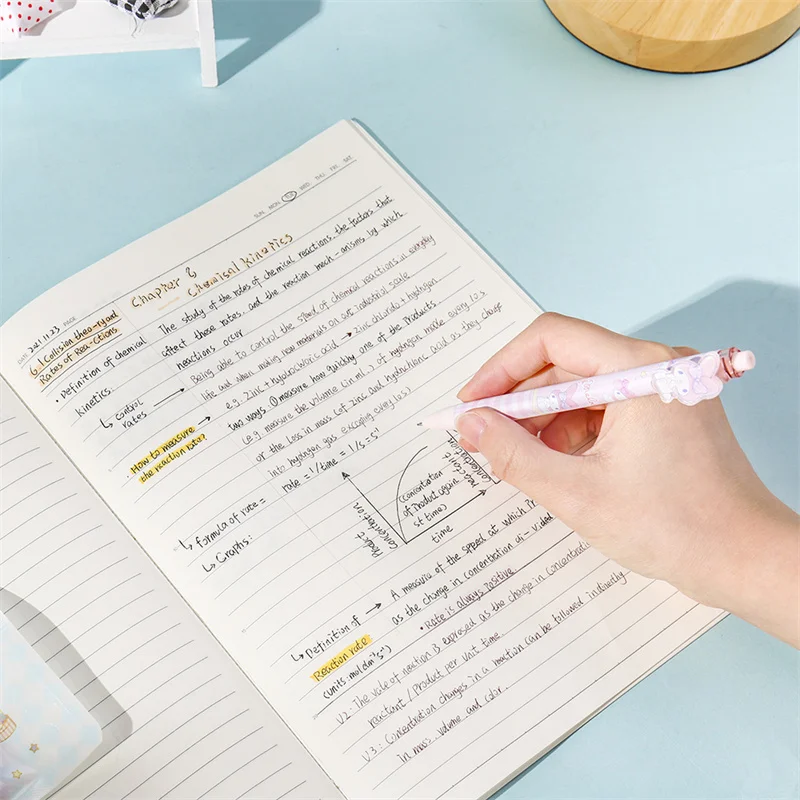 SUN MON TUE WED THU FRI SAT
DATE 2021.11.23 PAGE
Chapter 6
Chemisal kinetics
6.1 Collision theo-ry and
Rates of Rea-ctions
The study of the rates of chemical reactions, the factors that
affect these rates, and the reaction mech-anisms by which
reactions occur
• Definition of chemical
kinetics
↳ control
rates →
Being able to control the speed of chemical reactions in everyday
life and when making new materials on an industrial scale
e.g. zinc + hydrochloric acid → zinc chloride + hydrogen
How to measure
the reaction rates →
two ways ① measure how quickly one of the products
(e.g. measure the volume (in mL) of hydrogen made every 10s
or the loss in mass (of zinc and hydrochloric acid as they change
into hydrogen gas escaping every 10s)
↳ formula of rate =
rate = 1/time = 1/s = s⁻¹
↳ Graphs:
Product
Concentration
(concentration
of Product again-
st time)
time
reactant
concentration
↳ Definition of →
Reaction rate
(units: mol dm⁻³ s⁻¹)
A measure of the speed at which
as the change in concentration di-vided
• Rate is always positive
V2: The rate of reaction is expresed as the change in concentration
reactant / Product per unit time.
V3: Concentration changes in a reaction can be followed indirectly
in mass, volume and color.